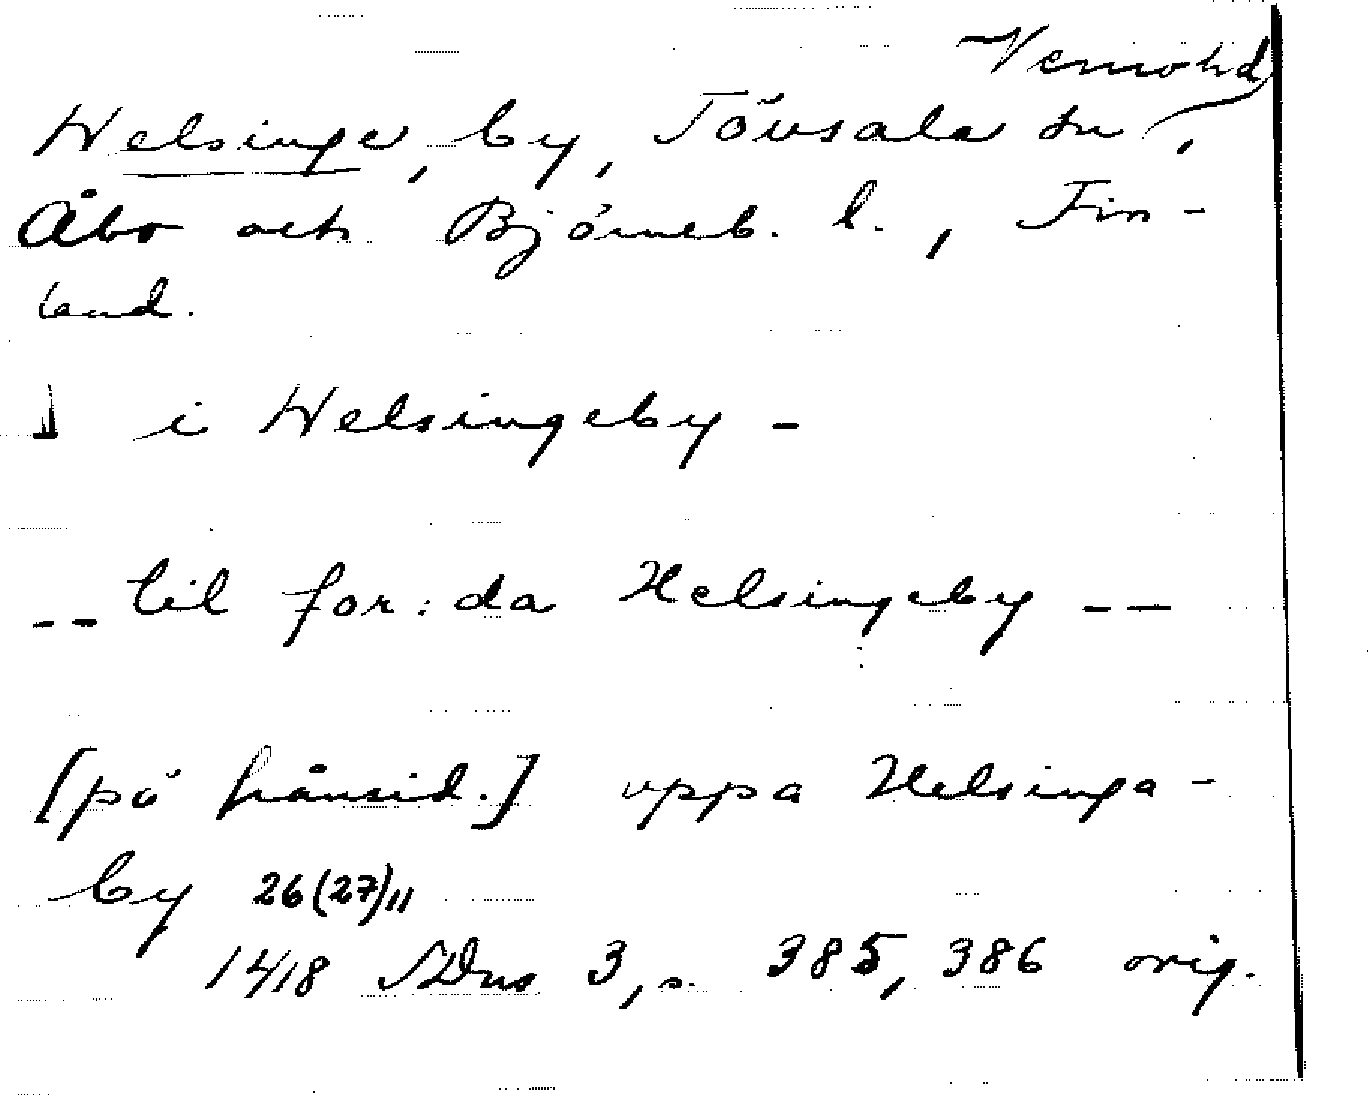 Vemo hd
Helsinge, by, Tövsala sn,
Åbo och Björneb. l., Fin-
land.
↓ i Helsingeby -
-- til for:da Helsingeby --
[på frånsid.] uppa Helsinga-
by 26(27)/11
1418 SDns 3, s. 385, 386 orig.